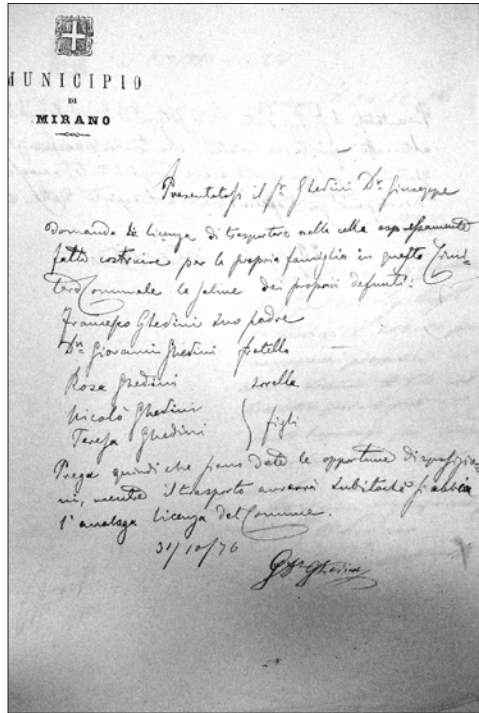 MUNICIPIO
DI
MIRANO
Presentatosi il Sr. Ghedini Dr. Giuseppe
Domanda la licenza di trasportare nelle celle espressamente
fatti costruire per la propria famiglia in questo Cimi-
tero Communale le salme dei proprii defunti:
Francesco Ghedini suo padre
Dr. Giovanni Ghedini fratello
Rosa Ghedini sorella
Nicolò Ghedini
Teresa Ghedini } figli
Prega quindi che siano date le opportune disposizio-
ni, mentre il trasporto avverrà subitochè si abbia
l'analoga licenza del Comune.
31/10/76
Ghedini